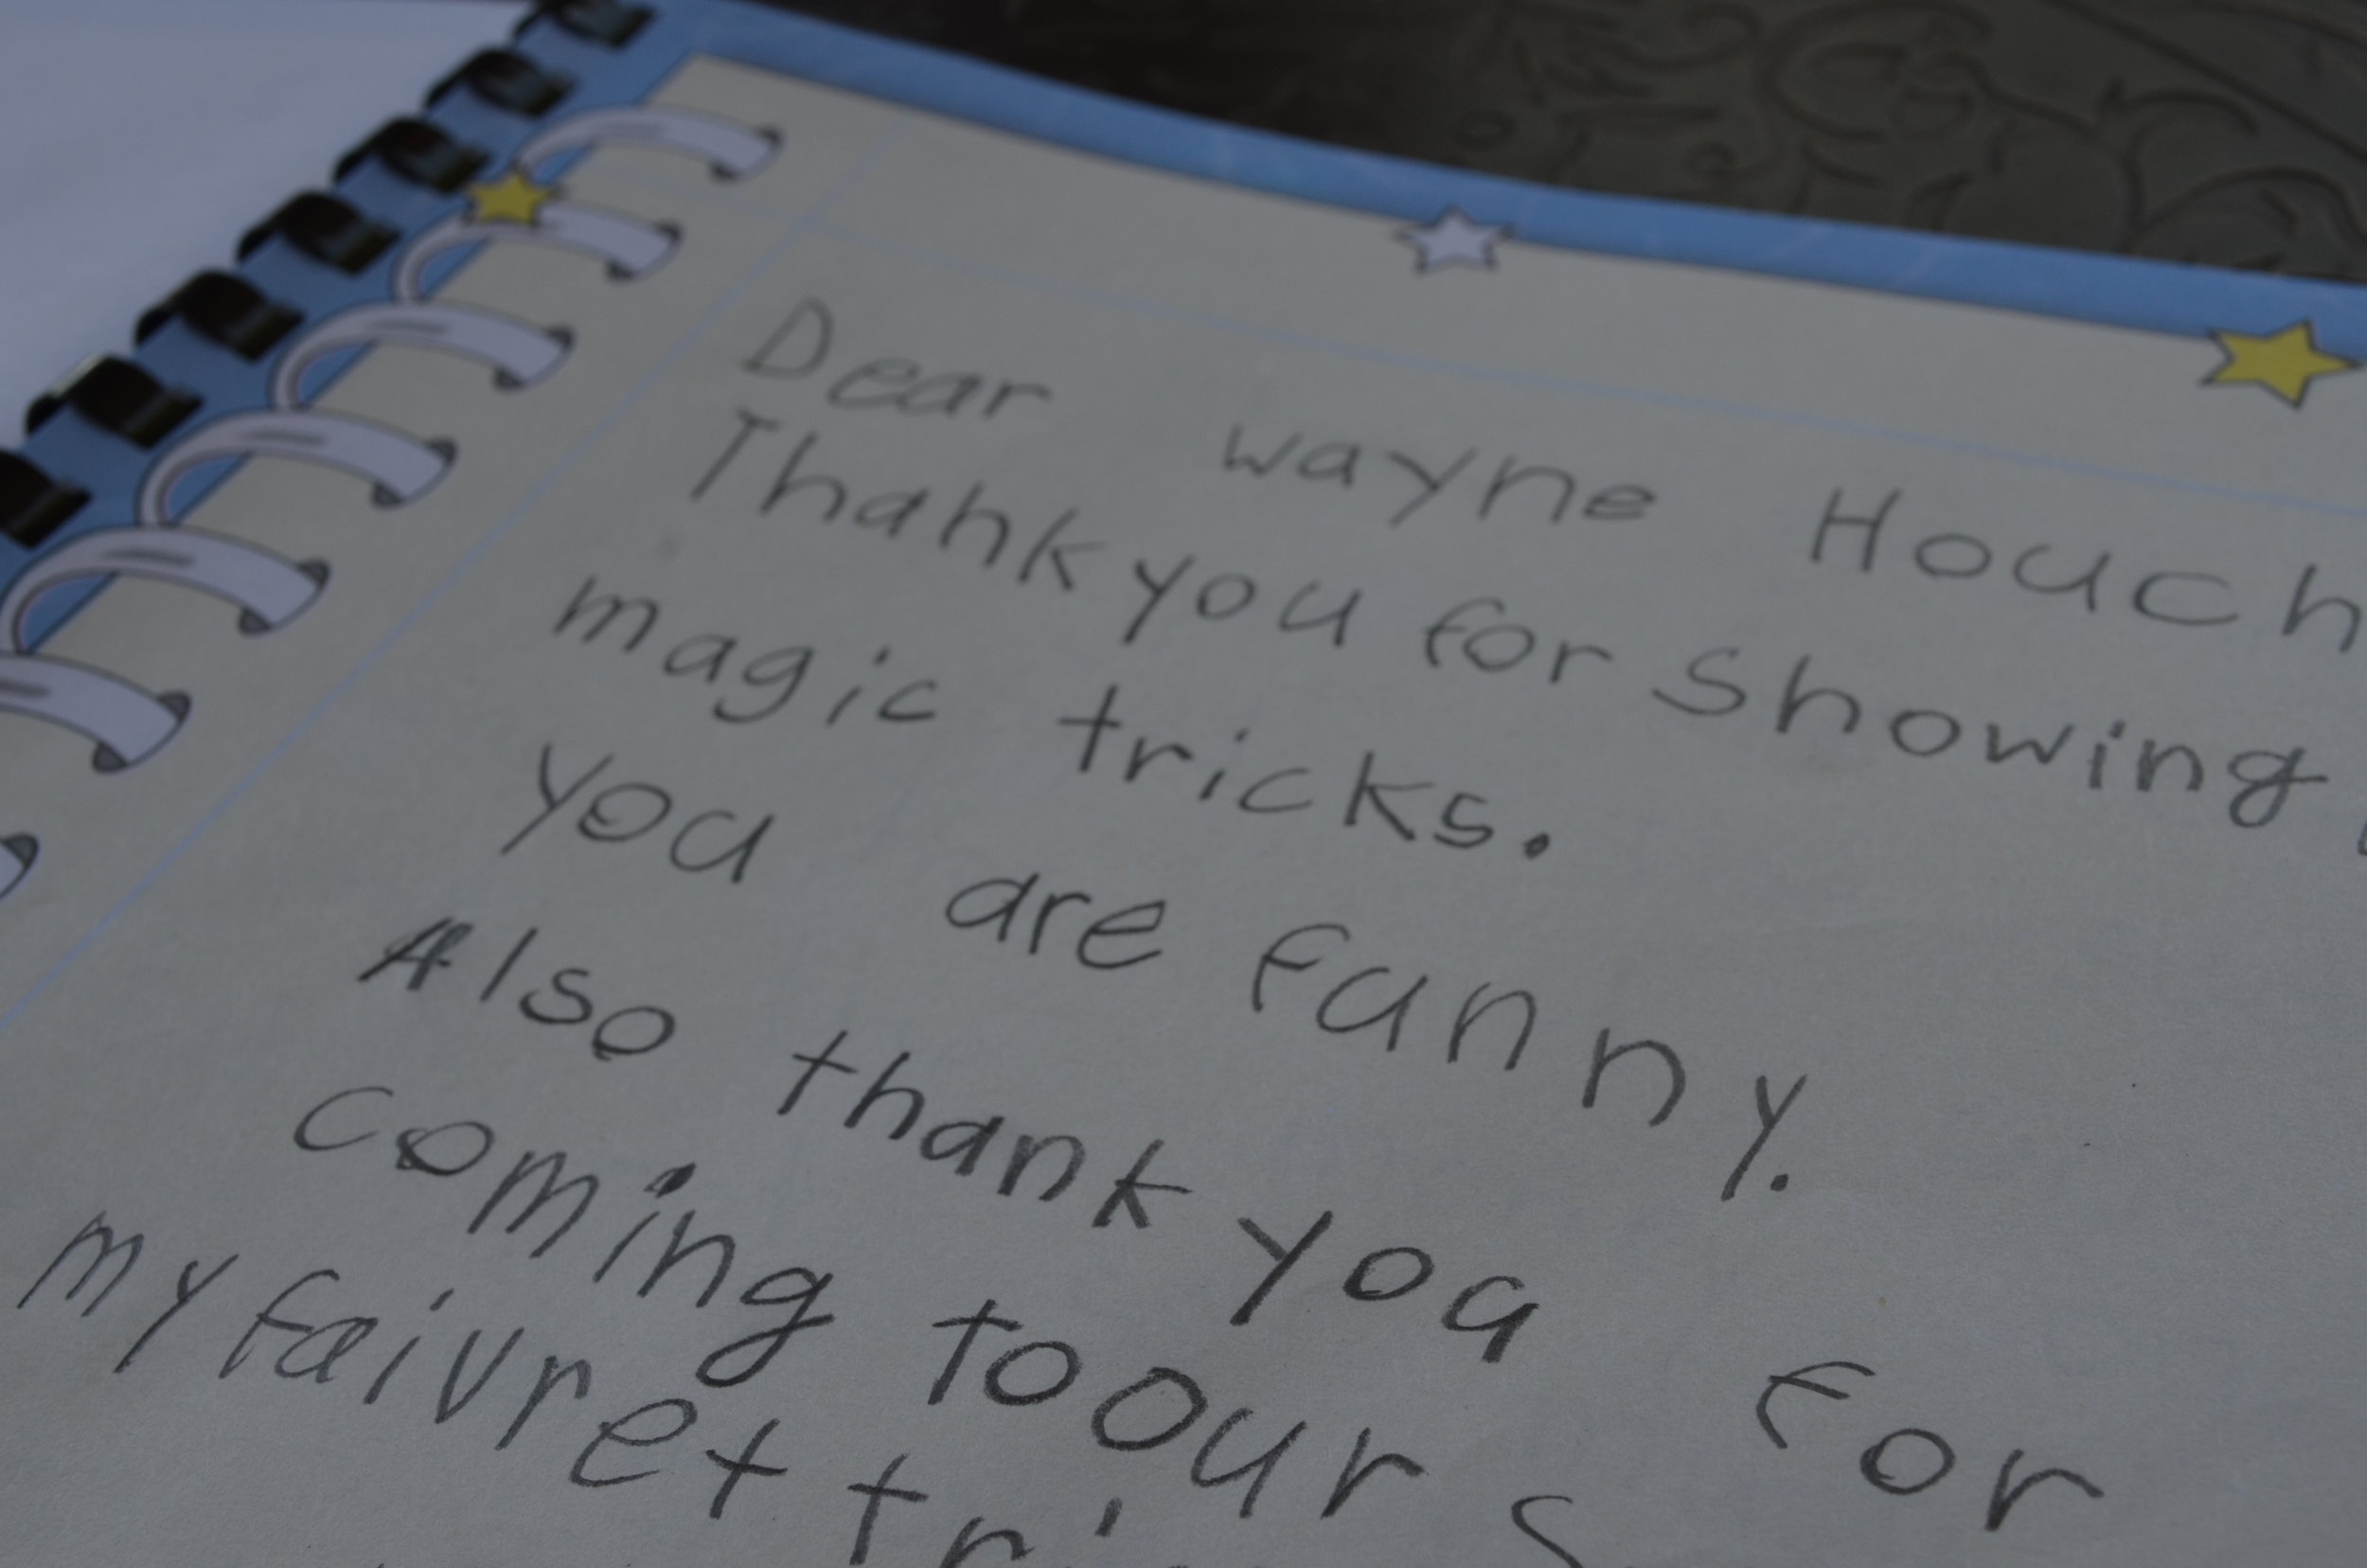 Dear wayne Houch
Thank you for showing
magic tricks.
you are funny.
Also thank you for
coming to our s
my faivret tri